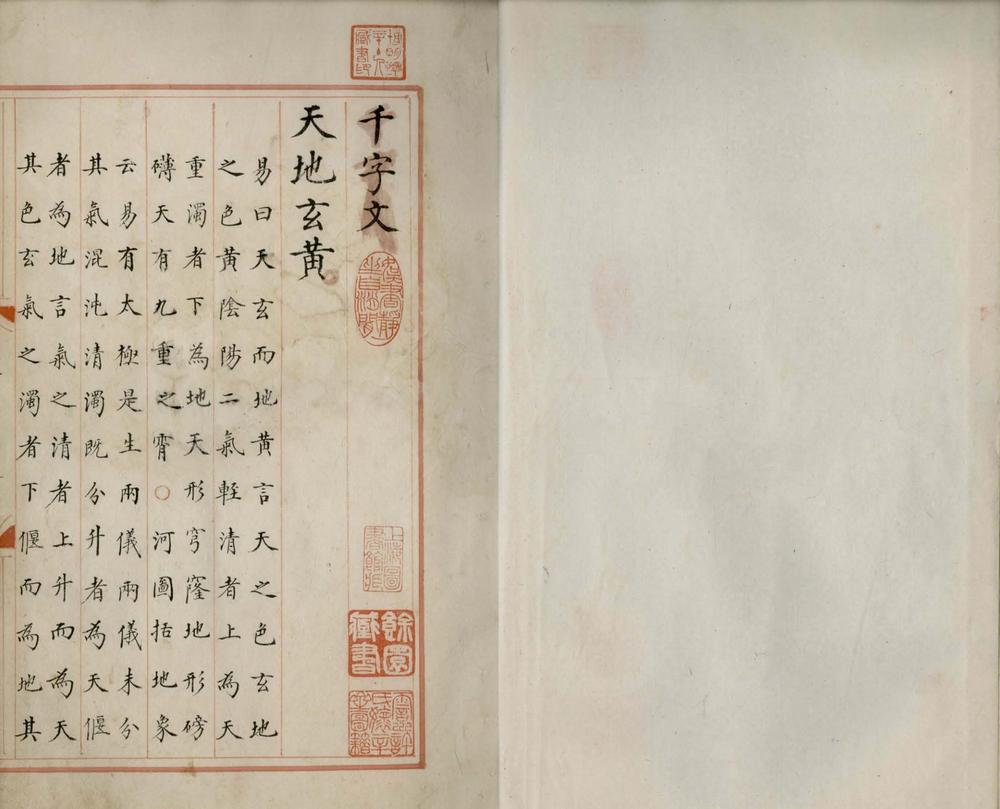 千字文
天地玄黃
易曰天玄而地黃言天之色玄地
之色黃陰陽二氣輕清者上為天
重濁者下為地天形穹窿地形磅
礴天有九重之霄○河圖括地象
云易有太極是生兩儀兩儀未分
其氣混沌清濁既分升者為天偃
者為地言氣之清者上升而為天
其色玄氣之濁者下偃而為地其
上海圖書館所
餘園藏書